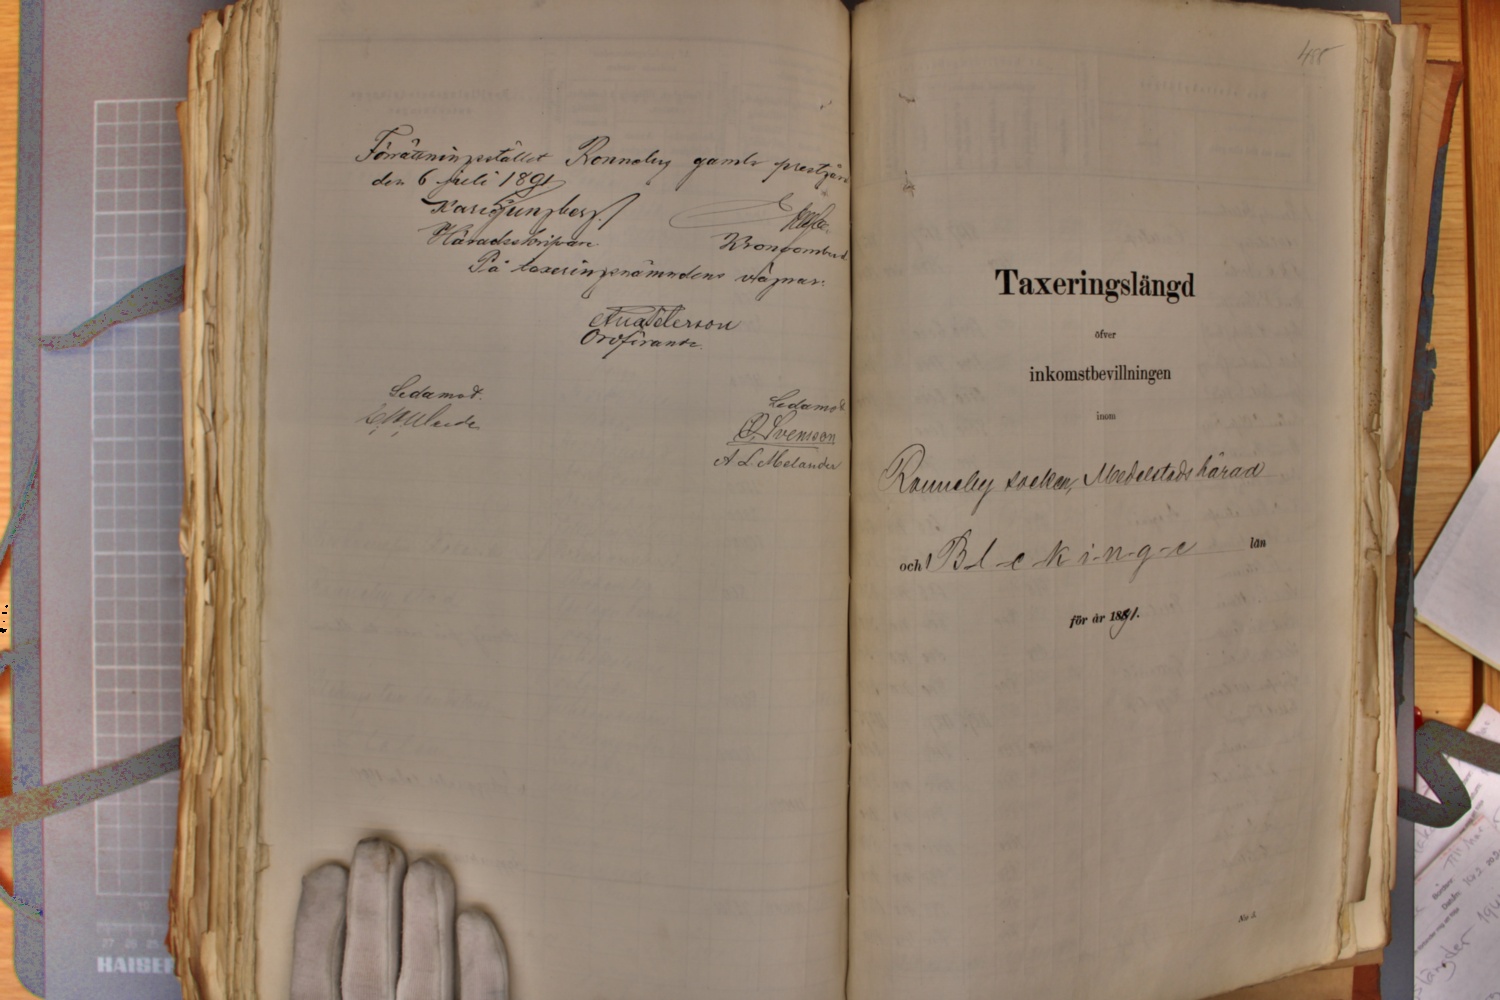 Förrättningsstället Ronneby gamla prestgård
den 6 juli 1891
Häradsskrifvare
Kronoombud
På taxeringsnämndens vägnar:
Aug Peterson
Ordförande
Ledamot.
Ledamot
O. Svensson
A L Melander
Taxeringslängd
öfver
inkomstbevillningen
inom
Ronneby socken, Medelstads härad
och Blekinge län
för år 1891.
No 5.
HAISER